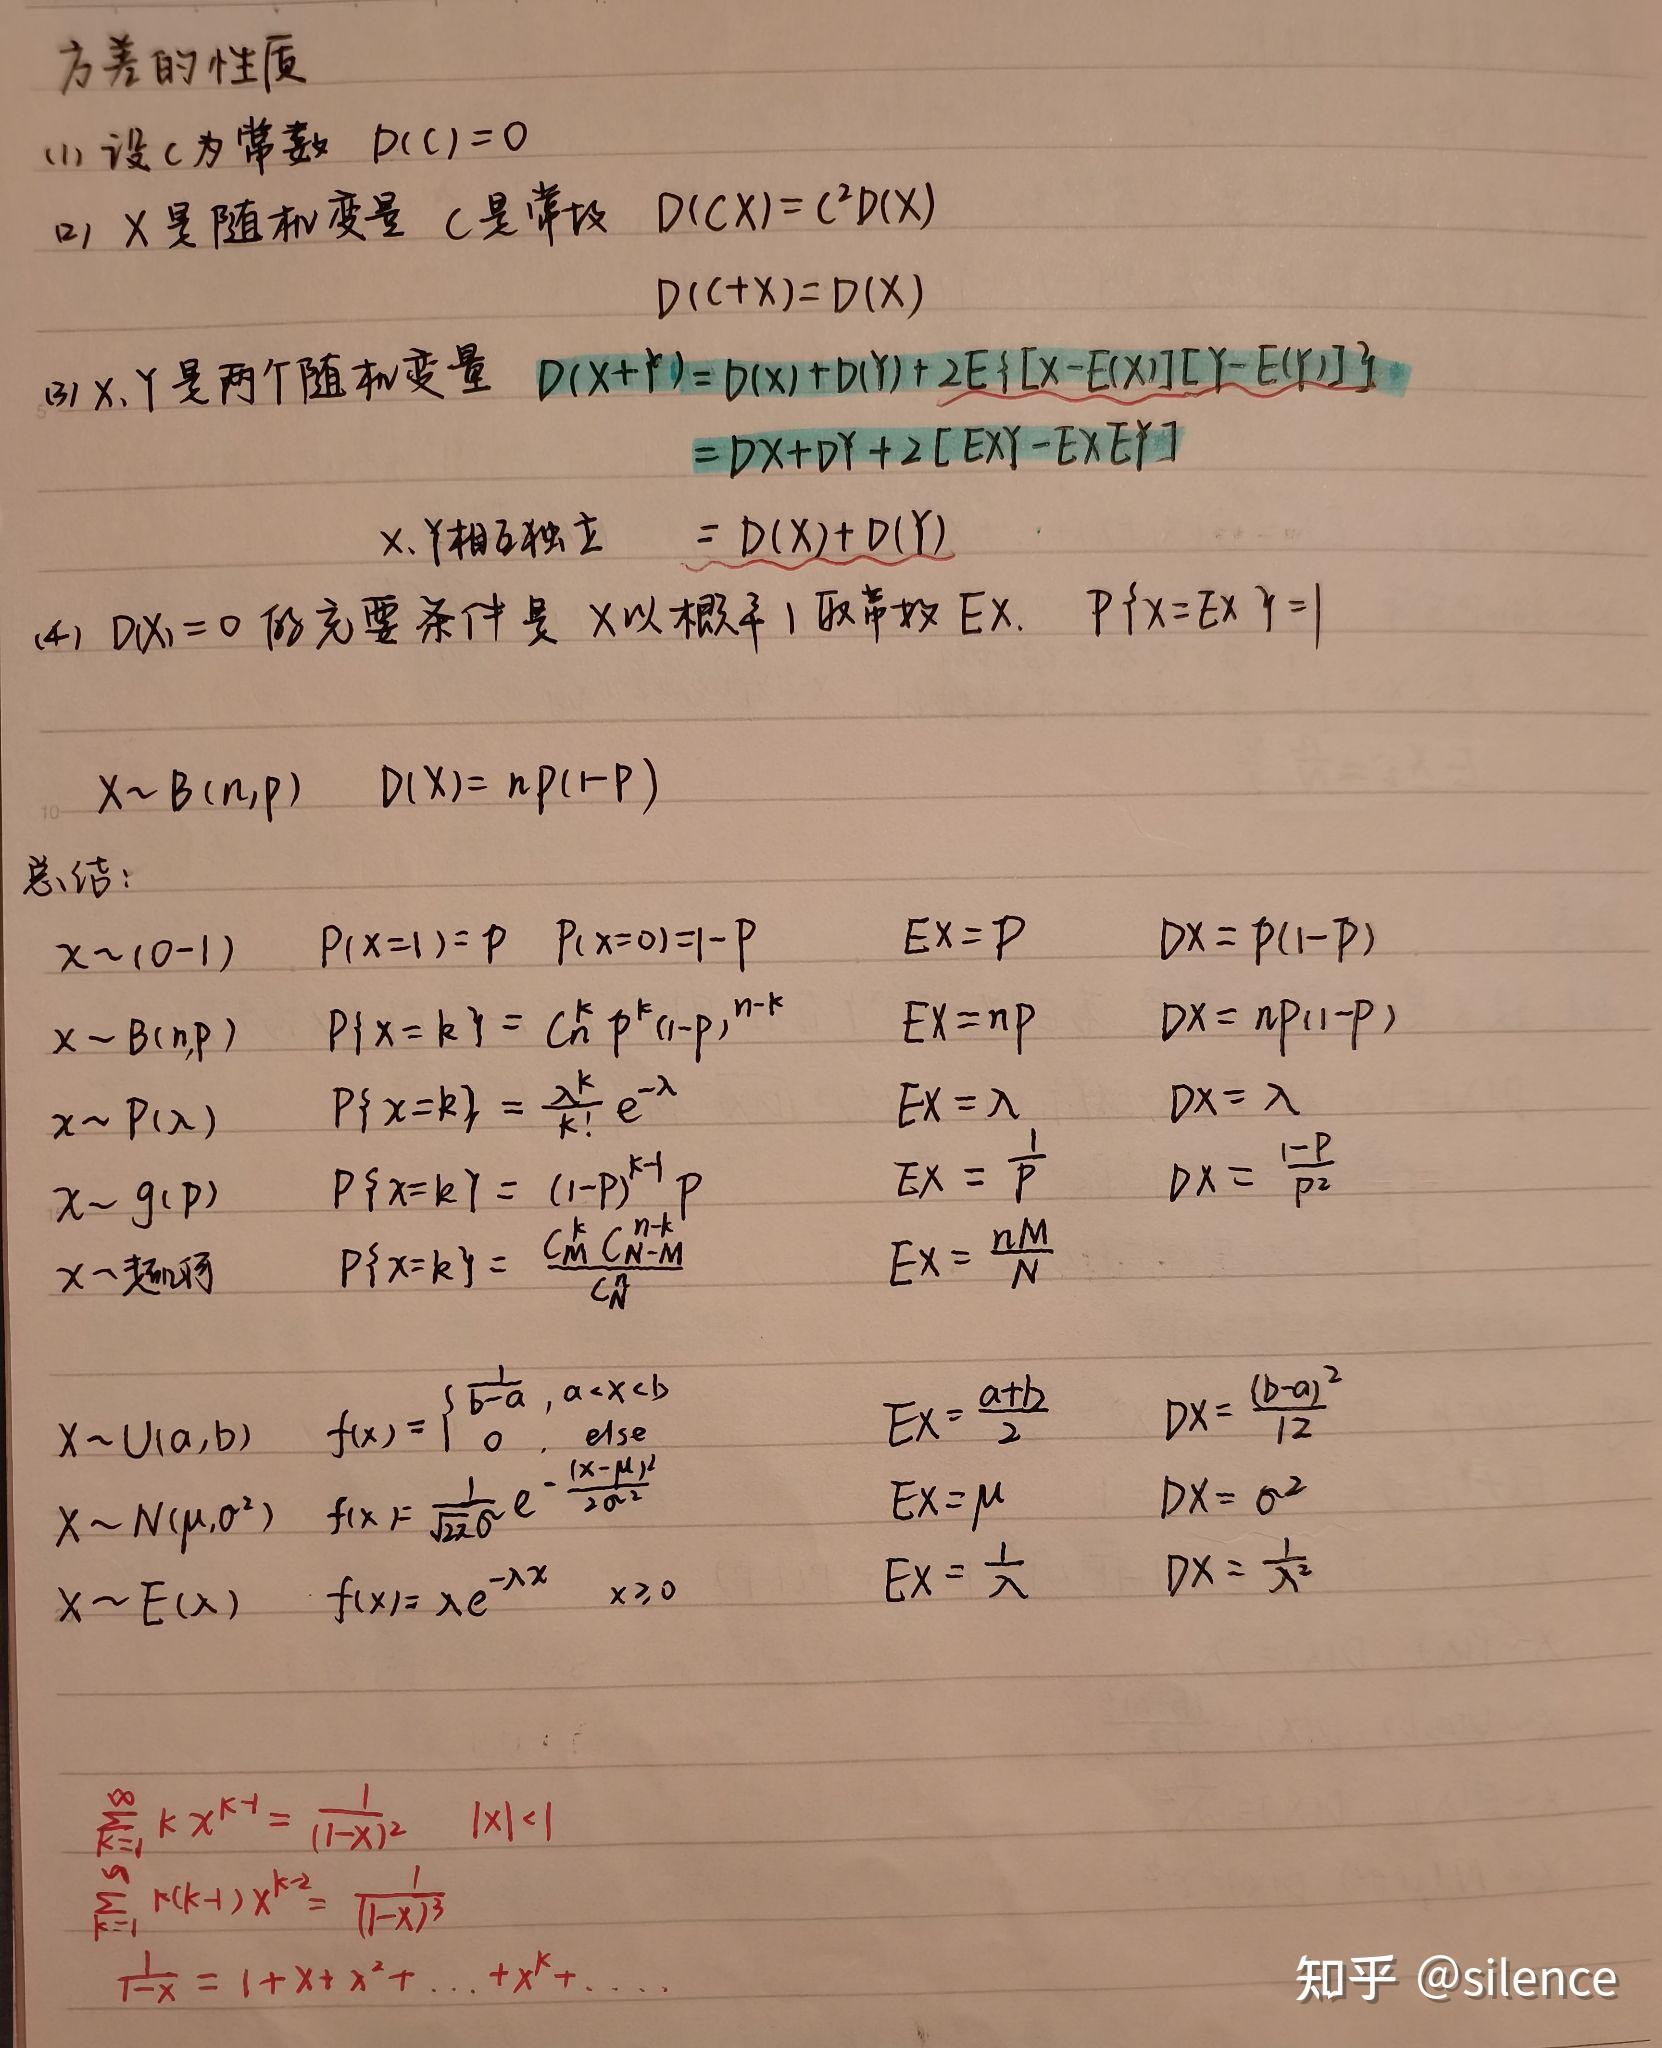 方差的性质
(1) 设C为常数 D(C)=0
(2) X是随机变量 C是常数 D(CX)=C²D(X)
D(C+X)=D(X)
(3) X、Y是两个随机变量 D(X+Y)=D(X)+D(Y)+2E{[X-E(X)][Y-E(Y)]}
=DX+DY+2[EXY-EXEY]
X、Y相互独立 =D(X)+D(Y)
(4) D(X)=0 的充要条件是 X以概率1取常数EX. P{X=EX}=1
X~B(n,p) D(X)=np(1-p)
总结:
X~(0-1) P(X=1)=p P(X=0)=1-p EX=p DX=p(1-p)
X~B(n,p) P{X=k}=C_n^k p^k (1-p)^{n-k} EX=np DX=np(1-p)
X~P(λ) P{X=k}=\frac{λ^k}{k!} e^{-λ} EX=λ DX=λ
X~g(p) P{X=k}=(1-p)^{k-1} p EX=\frac{1}{p} DX=\frac{1-p}{p²}
X~超几何 P{X=k}=\frac{C_M^k C_{N-M}^{n-k}}{C_N^n} EX=\frac{nM}{N}
X~U(a,b) f(x)={\frac{1}{b-a}, a<x<b
0, else EX=\frac{a+b}{2} DX=\frac{(b-a)²}{12}
X~N(μ,σ²) f(x)=\frac{1}{\sqrt{2π}σ} e^{-\frac{(x-μ)²}{2σ²}} EX=μ DX=σ²
X~E(λ) f(x)=λe^{-λx} x≥0 EX=\frac{1}{λ} DX=\frac{1}{λ²}
\sum_{k=1}^{∞} k x^{k-1}=\frac{1}{(1-x)²} |x|<1
\sum_{k=1}^{∞} k(k-1)x^{k-2}=\frac{1}{(1-x)³}
\frac{1}{1-x}=1+x+x²+...+x^k+.....
知乎 @silence